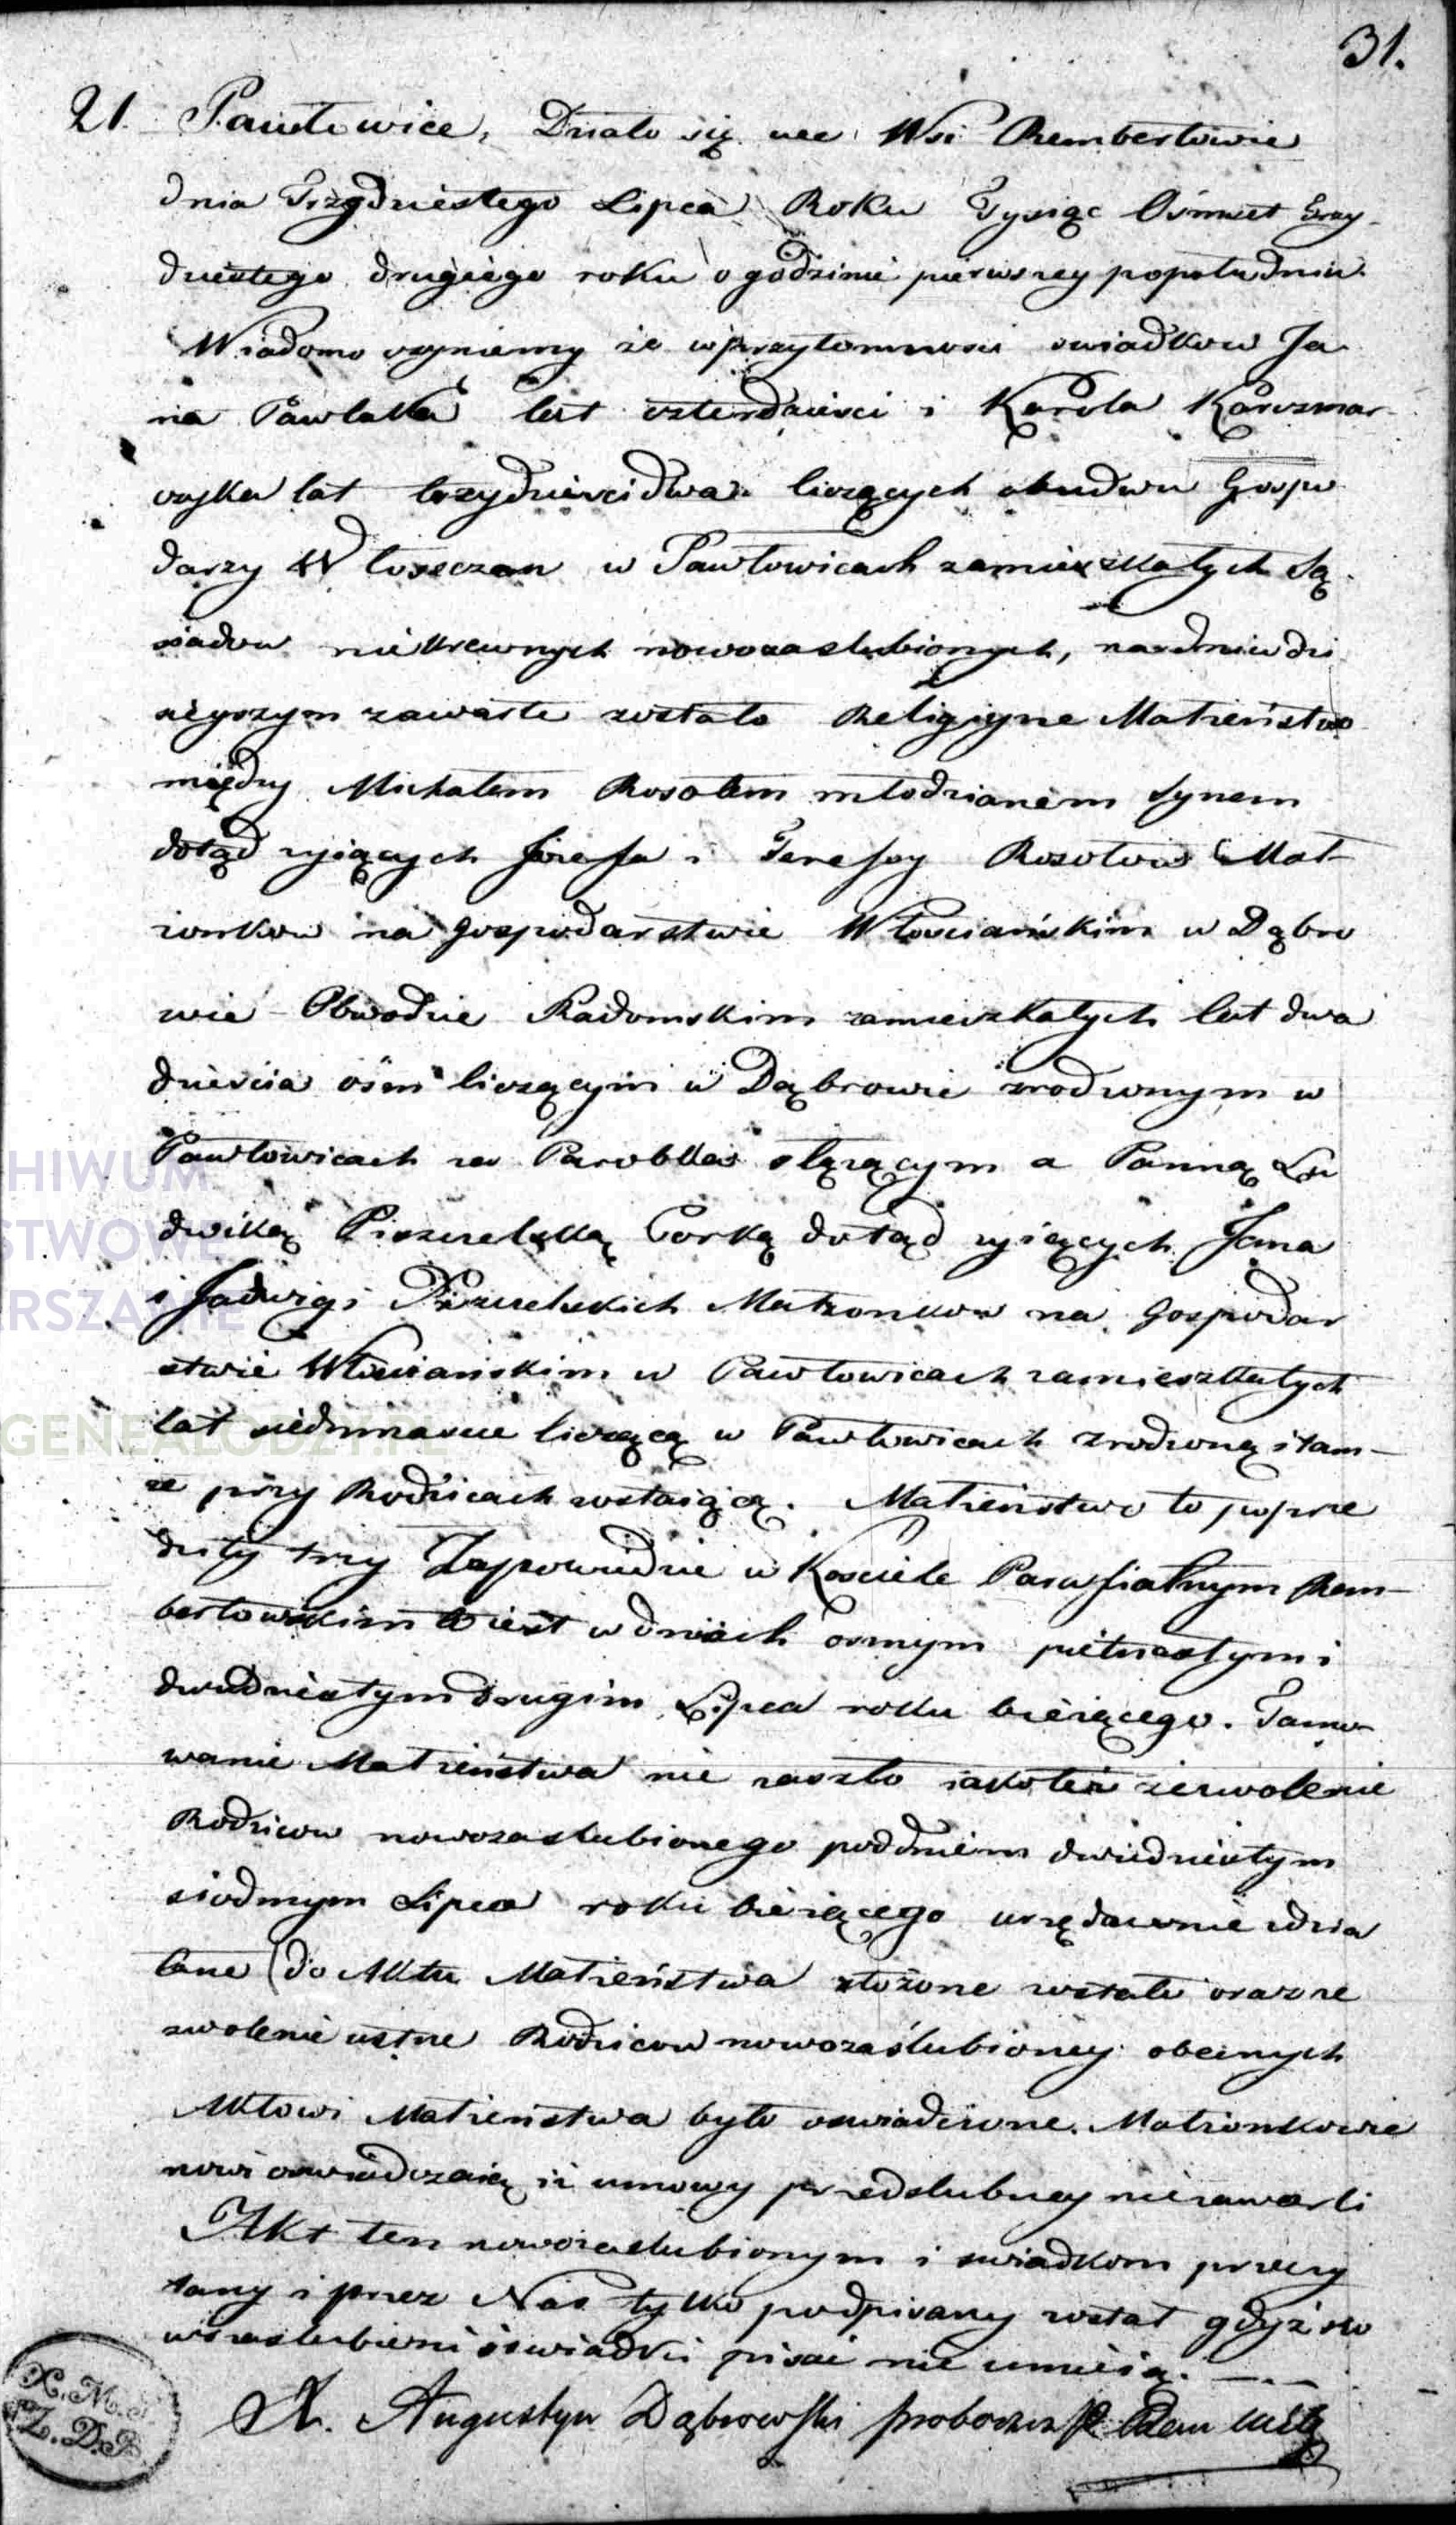 31.
21. Pawłowice, Działo się we Wsi Rembertowie
dnia Trzydziestego Lipca Roku Tysiąc Ośmset Trzy-
dziestego drugiego roku o godzinie pierwszey popołudniu.
Wiadomo czyniemy że w przytomności swiadkow Ja
na Pawlaka lat czterdzieści i Karola Karczmar-
czyka lat trzydzieści dwa liczących obudwu Gospo
darzy Włosczan w Pawłowicach zamieszkałych Są
siadow niekrewnych nowozaslubionych, na dniu dzi
sieyszym zawarte zostało Religijne Małżeństwo
między Michałem Rosołem młodzianem synem
dotąd zyiących Józefa i Teressy Rosołow Mał-
żonkow na gospodarstwie Włosciańskim w Dąbro
wie Obwodzie Radomskim zamieszkałych lat dwa
dzieścia ośm liczącym w Dąbrowie zrodzonym w
Pawłowicach za Parobka słązącym a Panną Lu
dwiką Piszczelską Corką dotąd zyiących Jana
i Jadwigi Piszczelskich Małzonkow na Gospodar
stwie Włościańskim w Pawłowicach zamieszkałych
lat siedmnascie liczącą w Pawłowicach zrodzoną i tam-
że przy Rodzicach zostaiącą. Małżeństwo to poprze
dziły trzy Zapowiedzie w Kosciele Parafialnym Rem-
bertowskim to iest w dniach osmym pietnastym i
dwudziestym drugim Lipca roku bieżącego. Tamo-
wanie Małżeństwa nie zaszło iakoteż zezwolenie
Rodzicow nowozaslubionego pod dniem dwudziestym
siodmym Lipca roku bieżącego urzędownie zdzia
łane do Aktu Małżeństwa złożone zostało oraz ze
zwolenie ustne Rodzicow nowozaślubioney obecnych
Aktowi Małżeństwa było oswiadczone. Małżonkowie
nowi oswiadczaią iż umowy przedslubney niezawarli
Akt ten nowozaslubionym i swiadkom przeczy
tany i przez Nas tylko podpisany został gdyż no
wozaslubieni i swiadki pisać nie umieią.
X. Augustyn Dąbrowski proboszcz
X.M.
Z.D.P.
HIWUM
STWOWE
RSZAWIE
GENEALODZY.PL